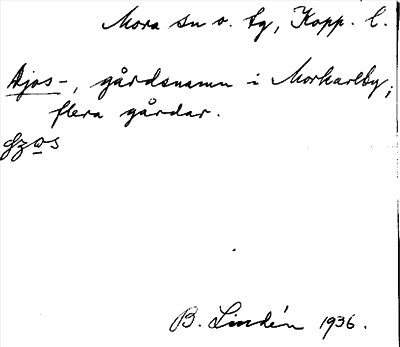 Mora sn o. tg, Kopp. l.
Ajos-, gårdsnamn i Morkarlby,
flera gårdar.
B. Lindén 1936.